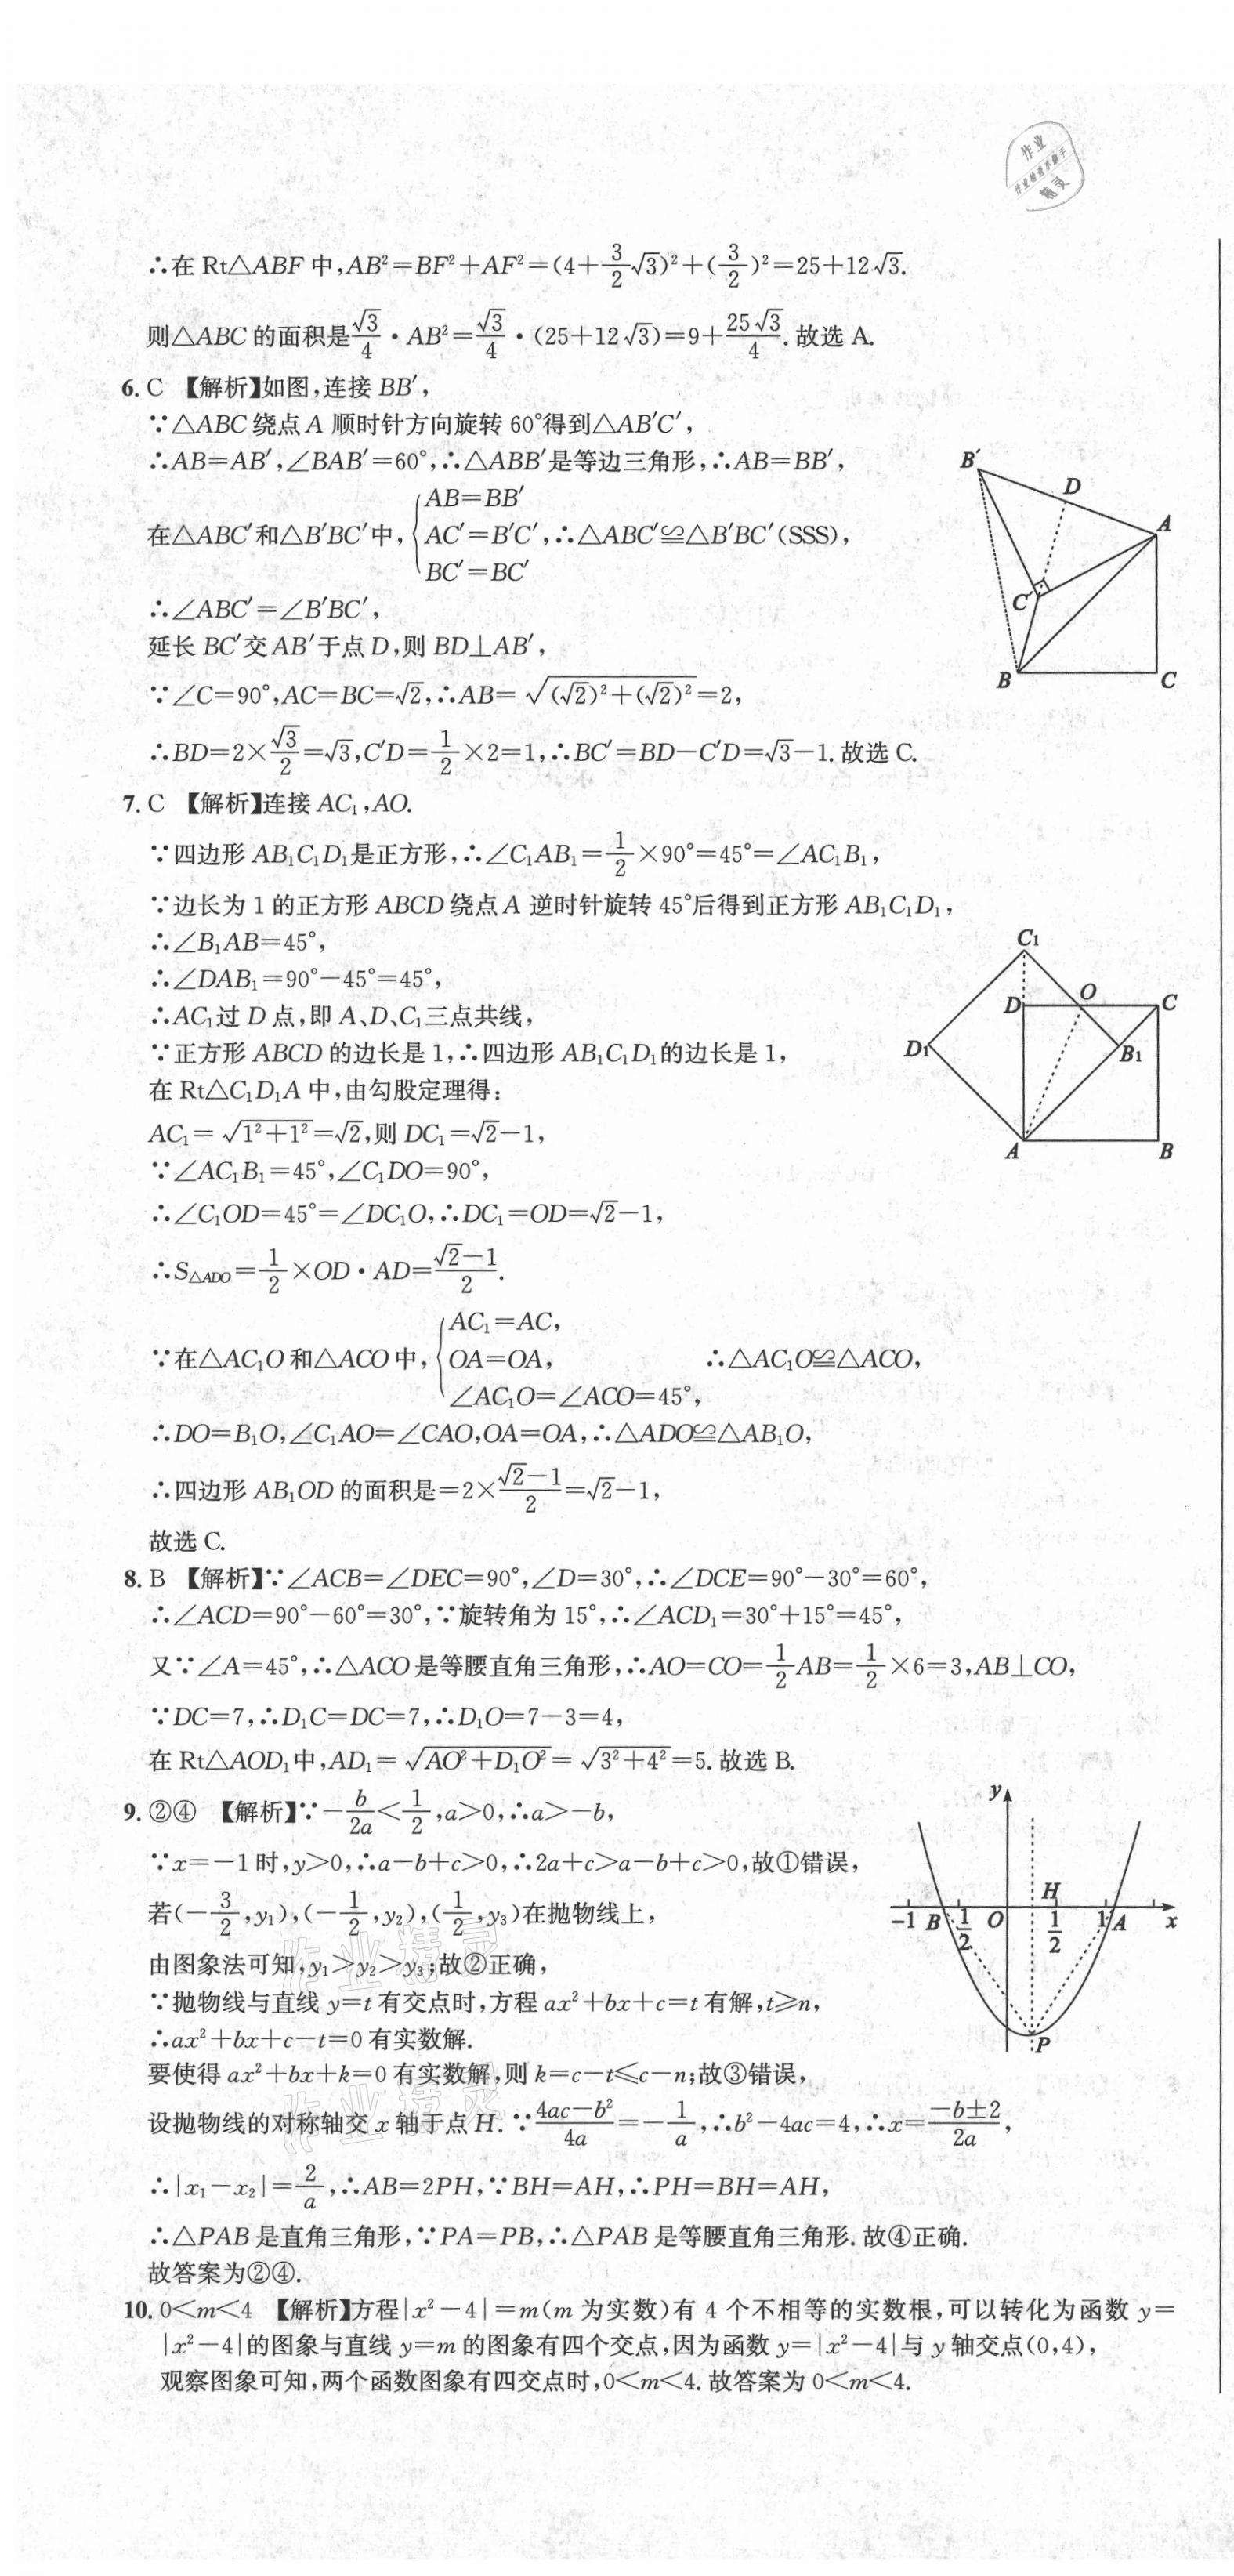 作业
作业检查小助手
精灵
∴在 Rt△ABF 中,AB²=BF²+AF²=(4+3/2√3)²+(3/2)²=25+12√3.
则△ABC 的面积是√3/4·AB²=√3/4·(25+12√3)=9+25√3/4.故选 A.
6. C 【解析】如图,连接 BB′,
∵△ABC 绕点 A 顺时针方向旋转 60°得到△AB′C′,
∴AB=AB′,∠BAB′=60°,∴△ABB′是等边三角形,∴AB=BB′,
在△ABC′和△B′BC′中,{AB=BB′
AC′=B′C′,∴△ABC′≌△B′BC′(SSS),
BC′=BC′
∴∠ABC′=∠B′BC′,
延长 BC′交 AB′于点 D,则 BD⊥AB′,
∵∠C=90°,AC=BC=√2,∴AB=√((√2)²+(√2)²)=2,
∴BD=2×√3/2=√3,C′D=1/2×2=1,∴BC′=BD−C′D=√3−1.故选 C.
B′
D
A
C′
B
C
7. C 【解析】连接 AC₁,AO.
∵四边形 AB₁C₁D₁是正方形,∴∠C₁AB₁=1/2×90°=45°=∠AC₁B₁,
∵边长为 1 的正方形 ABCD 绕点 A 逆时针旋转 45°后得到正方形 AB₁C₁D₁,
∴∠B₁AB=45°,
∴∠DAB₁=90°−45°=45°,
∴AC₁过 D 点,即 A、D、C₁三点共线,
∵正方形 ABCD 的边长是 1,∴四边形 AB₁C₁D₁的边长是 1,
在 Rt△C₁D₁A 中,由勾股定理得:
AC₁=√(1²+1²)=√2,则 DC₁=√2−1,
∵∠AC₁B₁=45°,∠C₁DO=90°,
∴∠C₁OD=45°=∠DC₁O,∴DC₁=OD=√2−1,
∴S△ADO=1/2×OD·AD=(√2−1)/2.
C₁
D
O
C
D₁
B₁
A
B
∵在△AC₁O 和△ACO 中,{AC₁=AC,
OA=OA, ∴△AC₁O≌△ACO,
∠AC₁O=∠ACO=45°,
∴DO=B₁O,∠C₁AO=∠CAO,OA=OA,∴△ADO≌△AB₁O,
∴四边形 AB₁OD 的面积是=2×(√2−1)/2=√2−1,
故选 C.
8. B 【解析】∵∠ACB=∠DEC=90°,∠D=30°,∴∠DCE=90°−30°=60°,
∴∠ACD=90°−60°=30°,∵旋转角为 15°,∴∠ACD₁=30°+15°=45°,
又∵∠A=45°,∴△ACO 是等腰直角三角形,∴AO=CO=1/2AB=1/2×6=3,AB⊥CO,
∵DC=7,∴D₁C=DC=7,∴D₁O=7−3=4,
在 Rt△AOD₁中,AD₁=√(AO²+D₁O²)=√(3²+4²)=5.故选 B.
9. ②④ 【解析】∵−b/2a<1/2,a>0,∴a>−b,
∵x=−1 时,y>0,∴a−b+c>0,∴2a+c>a−b+c>0,故①错误,
若(−3/2,y₁),(−1/2,y₂),(1/2,y₃)在抛物线上,
由图象法可知,y₁>y₂>y₃;故②正确,
∵抛物线与直线 y=t 有交点时,方程 ax²+bx+c=t 有解,t≥n,
∴ax²+bx+c−t=0 有实数解.
要使得 ax²+bx+k=0 有实数解,则 k=c−t≤c−n;故③错误,
设抛物线的对称轴交 x 轴于点 H.∵(4ac−b²)/4a=−1/a,∴b²−4ac=4,∴x=(−b±2)/2a,
∴|x₁−x₂|=2/a,∴AB=2PH,∵BH=AH,∴PH=BH=AH,
∴△PAB 是直角三角形,∵PA=PB,∴△PAB 是等腰直角三角形.故④正确.
故答案为②④.
y
H
−1 B 1/2 O 1/2 1 A x
P
作业精灵
作业精灵
10. 0<m<4 【解析】方程|x²−4|=m(m 为实数)有 4 个不相等的实数根,可以转化为函数 y=
|x²−4|的图象与直线 y=m 的图象有四个交点,因为函数 y=|x²−4|与 y 轴交点(0,4),
观察图象可知,两个函数图象有四交点时,0<m<4.故答案为 0<m<4.